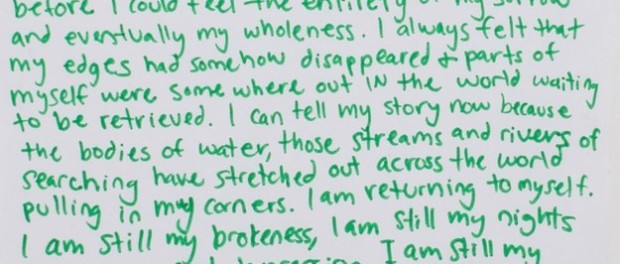 before I could feel the entirety of my sorrow
and eventually my wholeness. I always felt that
my edges had somehow disappeared & parts of
myself were some where out IN the world waiting
to be retrieved. I can tell my story now because
the bodies of water, those streams and rivers of
searching have stretched out across the world
pulling in my corners. I am returning to myself.
I am still my brokeness, I am still my nights
I am still my